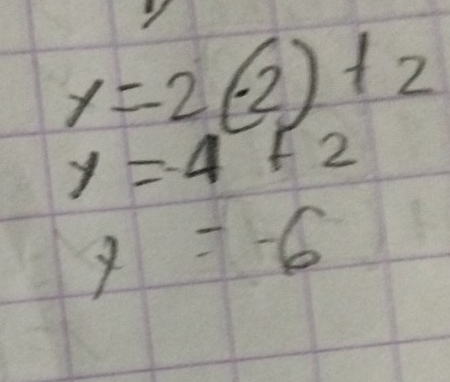 y = 2 (-2) + 2
y = -4 + 2
y = -6